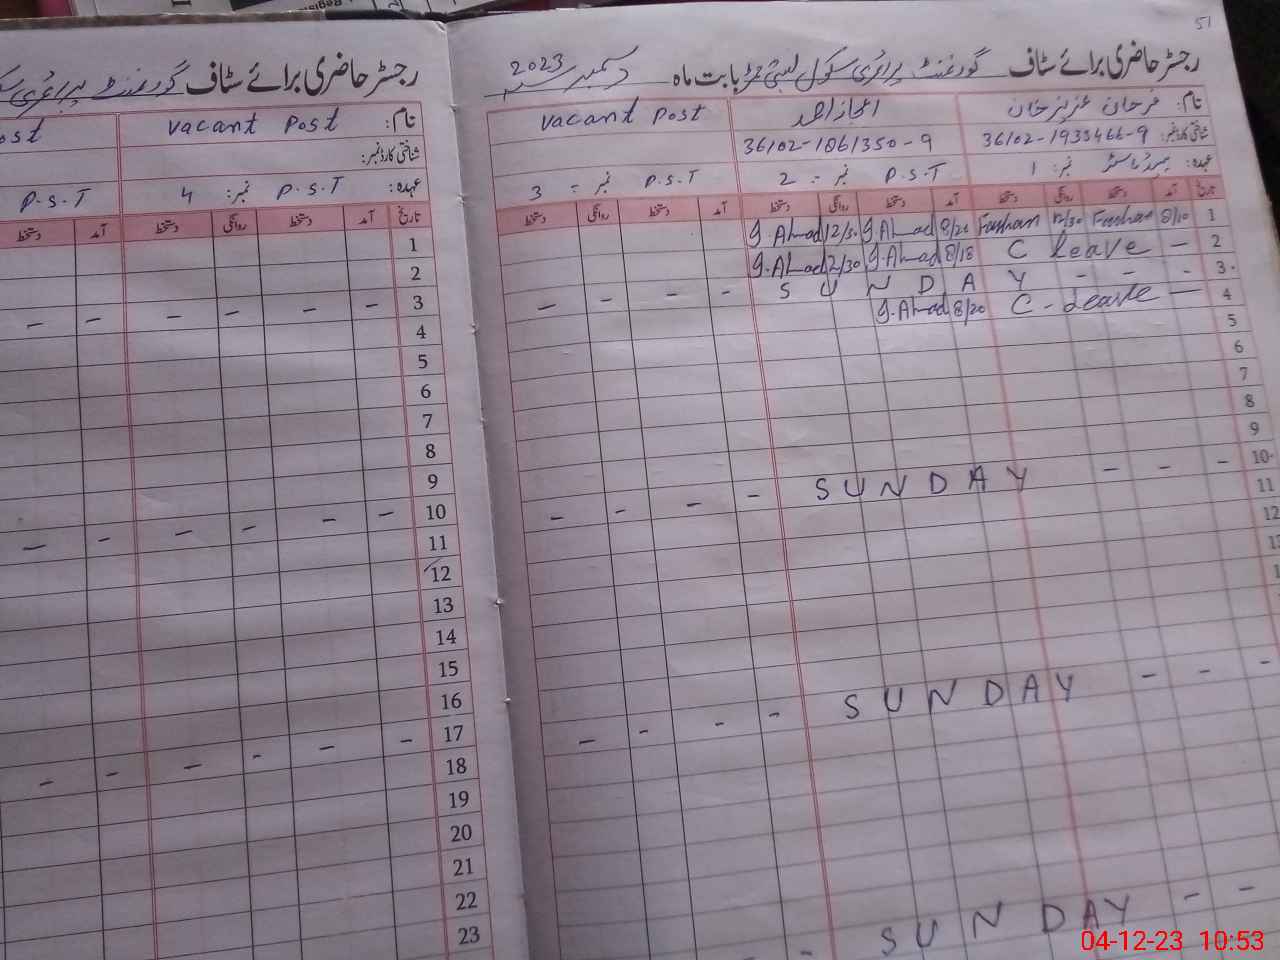 51
رجسٹر حاضری برائے سٹاف گورنمنٹ پرائمری سکول بابت ماہ دسمبر 2023
نام: فرحان عزیز خان
اعجاز احمد
vacant post
شناختی کارڈ نمبر: 36102-1933466-9
36102-1061350-9
عہدہ: ہیڈ ماسٹر نمبر: 1
P.S.T نمبر 2
P.S.T نمبر 3
تاریخ آمد دستخط روانگی دستخط آمد دستخط روانگی دستخط آمد دستخط روانگی دستخط
1 8/10 Farhan 12/30 Farhan 8/20 g.Ahmad 12/30 g.Ahmad
2 C Leave – 8/18 g.Ahmad 12/30 g.Ahmad
3 SUNDAY - - - - - - -
4 C-Leave – 8/20 g.Ahmad
5
6
7
8
9
10 SUNDAY - - - - - - -
11
12
SUNDAY - - - - - - -
SUNDAY - - -
رجسٹر حاضری برائے سٹاف گورنمنٹ پرائمری
نام: vacant post
شناختی کارڈ نمبر:
عہدہ: P.S.T نمبر: 4
P.S.T
تاریخ آمد دستخط روانگی دستخط آمد دستخط
1
2
3 - - - - - -
4
5
6
7
8
9
10 - - - - - -
11
12
13
14
15
16
17 - - - - - -
18
19
20
21
22
23
04-12-23 10:53